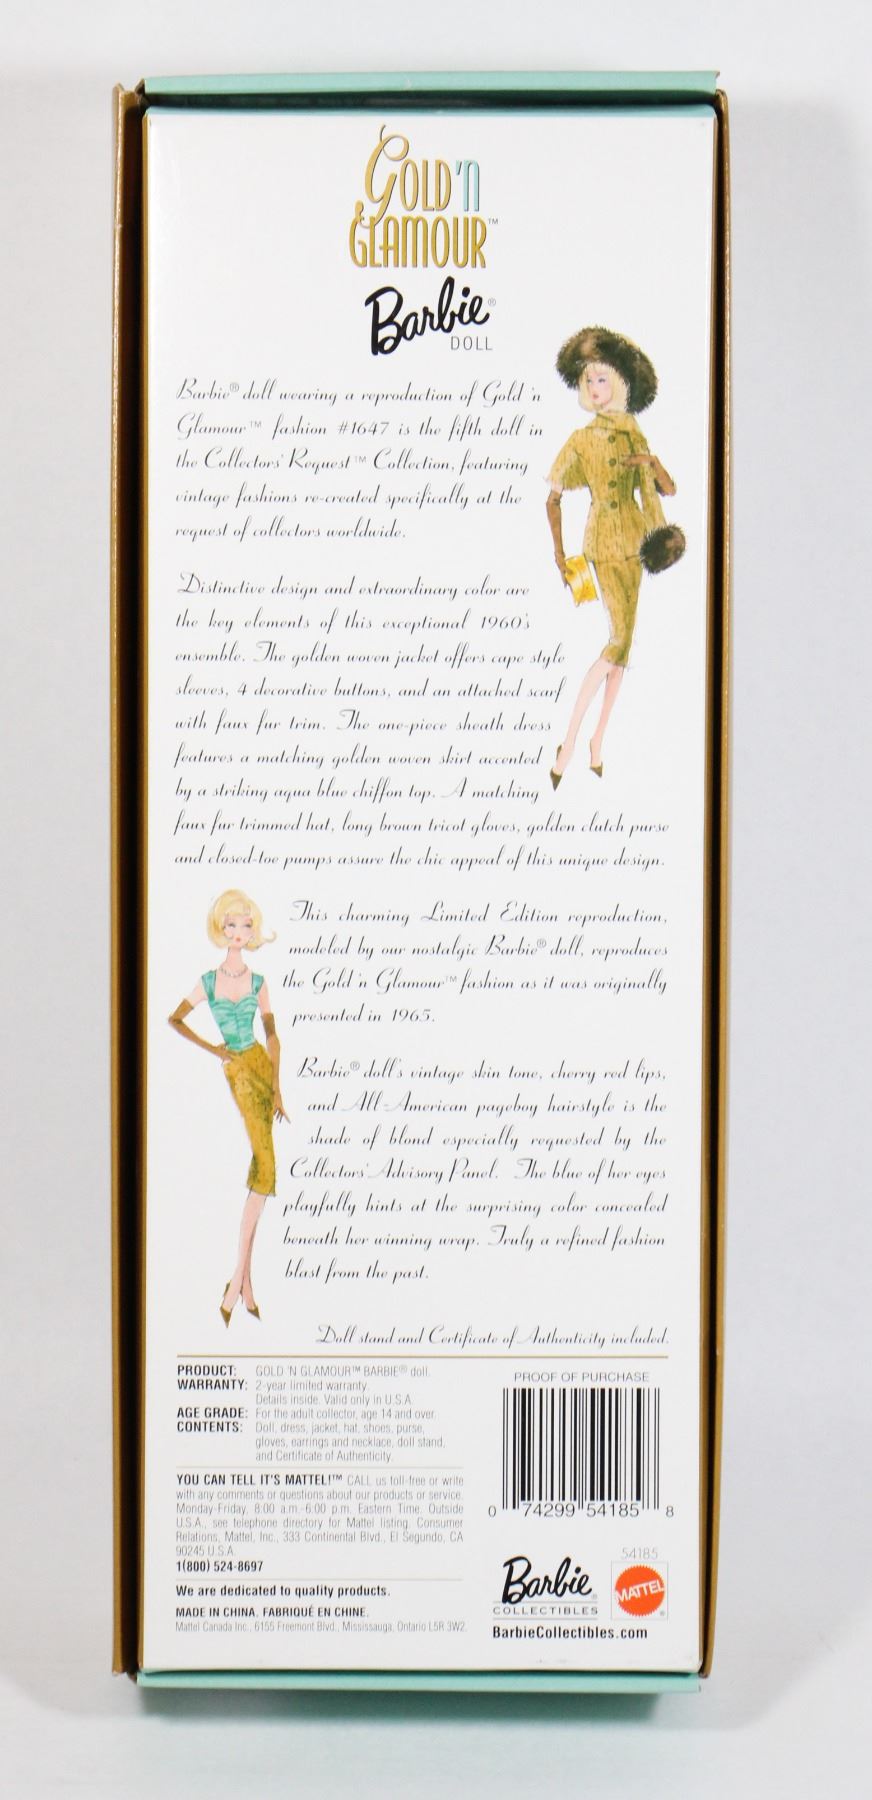 GOLD 'N
GLAMOUR™
Barbie®
DOLL
Barbie® doll wearing a reproduction of Gold 'n
Glamour™ fashion #1647 is the fifth doll in
the Collectors' Request™ Collection, featuring
vintage fashions re-created specifically at the
request of collectors worldwide.
Distinctive design and extraordinary color are
the key elements of this exceptional 1960's
ensemble. The golden woven jacket offers cape style
sleeves, 4 decorative buttons, and an attached scarf
with faux fur trim. The one-piece sheath dress
features a matching golden woven skirt accented
by a striking aqua blue chiffon top. A matching
faux fur trimmed hat, long brown tricot gloves, golden clutch purse
and closed-toe pumps assure the chic appeal of this unique design.
This charming Limited Edition reproduction,
modeled by our nostalgic Barbie® doll, reproduces
the Gold 'n Glamour™ fashion as it was originally
presented in 1965.
Barbie® doll's vintage skin tone, cherry red lips,
and All-American pageboy hairstyle is the
shade of blond especially requested by the
Collectors' Advisory Panel. The blue of her eyes
playfully hints at the surprising color concealed
beneath her winning wrap. Truly a refined fashion
blast from the past.
Doll stand and Certificate of Authenticity included.
PRODUCT: GOLD 'N GLAMOUR™ BARBIE® doll.
WARRANTY: 2-year limited warranty.
Details inside. Valid only in U.S.A.
AGE GRADE: For the adult collector, age 14 and over.
CONTENTS: Doll, dress, jacket, hat, shoes, purse,
gloves, earrings and necklace, doll stand,
and Certificate of Authenticity.
YOU CAN TELL IT'S MATTEL!™ CALL us toll-free or write
with any comments or questions about our products or service.
Monday-Friday, 8:00 a.m.-6:00 p.m. Eastern Time. Outside
U.S.A., see telephone directory for Mattel listing. Consumer
Relations, Mattel, Inc., 333 Continental Blvd., El Segundo, CA
90245 U.S.A.
1(800) 524-8697
We are dedicated to quality products.
MADE IN CHINA. FABRIQUÉ EN CHINE.
Mattel Canada Inc., 6155 Freemont Blvd., Mississauga, Ontario L5R 3W2.
PROOF OF PURCHASE
0 74299 54185 8
54185
Barbie®
COLLECTIBLES
MATTEL®
BarbieCollectibles.com